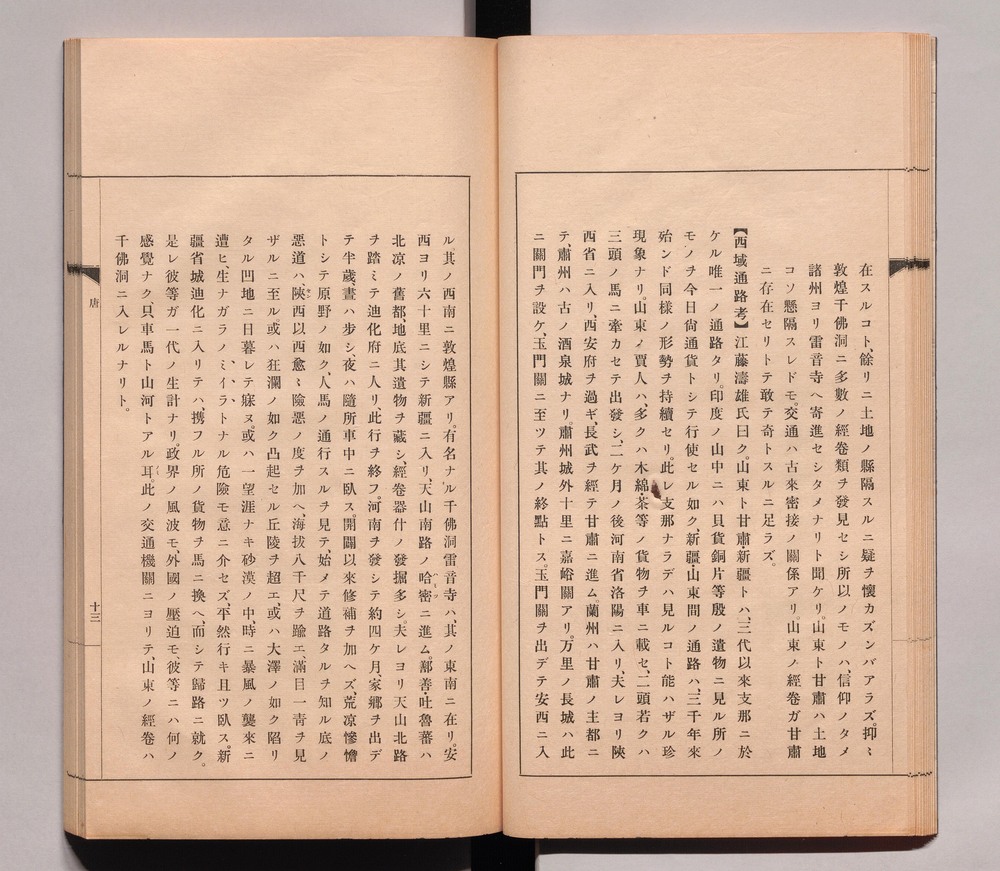 在スルコト、餘リニ土地ノ縣隔スルニ疑ヲ懷カズンバアラズ。抑〻
敦煌千佛洞ニ多數ノ經卷類ヲ發見セシ所以ノモノハ、信仰ノタメ
諸州ヨリ雷音寺ヘ寄進セシタメナリト聞ケリ。山東ト甘肅ハ土地
コソ懸隔スレドモ、交通ハ古來密接ノ關係アリ。山東ノ經卷ガ甘肅
ニ存在セリトテ敢テ奇トスルニ足ラズ。
【西域通路考】江藤濤雄氏曰ク。山東ト甘肅新疆トハ、三代以來支那ニ於
ケル唯一ノ通路タリ。印度ノ山中ニハ貝貨銅片等殷ノ遺物ニ見ル所ノ
モノヲ今日尙通貨トシテ行使セル如ク、新疆・山東間ノ通路ハ、三千年來
殆ンド同樣ノ形勢ヲ持續セリ。此レ支那ナラデハ見ルコト能ハザル珍
現象ナリ。山東ノ賈人ハ、多クハ木綿・茶等ノ貨物ヲ車ニ載セ、二頭若クハ
三頭ノ馬ニ牽カセテ出發シ、二ケ月ノ後河南省洛陽ニ入リ、夫レヨリ陝
西省ニ入リ、西安府ヲ過ギ、長武ヲ經テ甘肅ニ進ム。蘭州ハ甘肅ノ主都ニ
テ、肅州ハ古ノ酒泉城ナリ。肅州城外十里ニ嘉峪關アリ。万里ノ長城ハ此
ニ關門ヲ設ケ、玉門關ニ至ツテ其ノ終點トス。玉門關ヲ出デテ安西ニ入
ル、其ノ西南ニ敦煌縣アリ。有名ナル千佛洞雷音寺ハ、其ノ東南ニ在リ。安
西ヨリ六十里ニシテ新疆ニ入リ、天山南路ノ哈密ニ進ム。鄯善・吐魯蕃ハ
北凉ノ舊都、地底其遺物ヲ藏シ、經卷器什ノ發掘多シ。夫レヨリ天山北路
ヲ踏ミテ迪化府ニ人リ、此行ヲ終フ。河南ヲ發シテ約四ケ月、家鄕ヲ出デ
テ半歲、晝ハ步シ、夜ハ隨所車中ニ臥ス。開闢以來修補ヲ加ヘズ、荒凉慘憺
トシテ原野ノ如ク、人馬ノ通行スルヲ見テ、始メテ道路タルヲ知ル底ノ
惡道ハ、陝西以西愈〻險惡ノ度ヲ加ヘ、海拔八千尺ヲ踰エ、滿目一靑ヲ見
ザルニ至ル。或ハ狂瀾ノ如ク凸起セル丘陵ヲ超エ、或ハ大澤ノ如ク陷リ
タル凹地ニ日暮レテ寐ヌ。或ハ一望涯ナキ砂漠ノ中、時ニ暴風ノ襲來ニ
遭ヒ、生ナガラノミイラトナル危險モ意ニ介セズ、平然行キ且ツ臥ス。新
疆省城迪化ニ入リテハ、携フル所ノ貨物ヲ馬ニ換ヘ、而シテ歸路ニ就ク。
是レ彼等ガ一代ノ生計ナリ。政界ノ風波モ、外國ノ壓迫モ、彼等ニハ何ノ
感覺ナク只車馬ト山河トアル耳。此ノ交通機關ニヨリテ、山東ノ經卷ハ
千佛洞ニ入レルナリト。
唐
十三